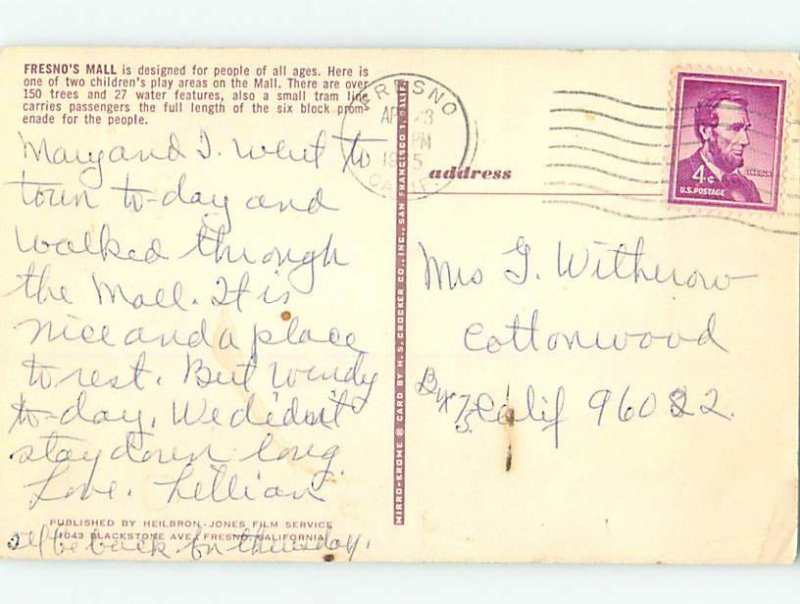 FRESNO'S MALL is designed for people of all ages. Here is
one of two children's play areas on the Mall. There are over
150 trees and 27 water features, also a small tram line
carries passengers the full length of the six block prom-
enade for the people.
Mary and I. went to
town to-day and
walked through
the Mall. It is
nice and a place
to rest. But windy
to-day. We didn't
stay down long.
Love. Lillian
PUBLISHED BY HEILBRON-JONES FILM SERVICE
1043 BLACKSTONE AVE. FRESNO, CALIFORNIA
I'll be back for thursday.
MIRRO-KROME ® CARD BY H. S. CROCKER CO., INC., SAN FRANCISCO 1, CALIF.
FRESNO
PM
CALIF.
address
4¢
LINCOLN
U.S. POSTAGE
Mrs G. Witherow
Cottonwood
Bx 75 Calif 96022.